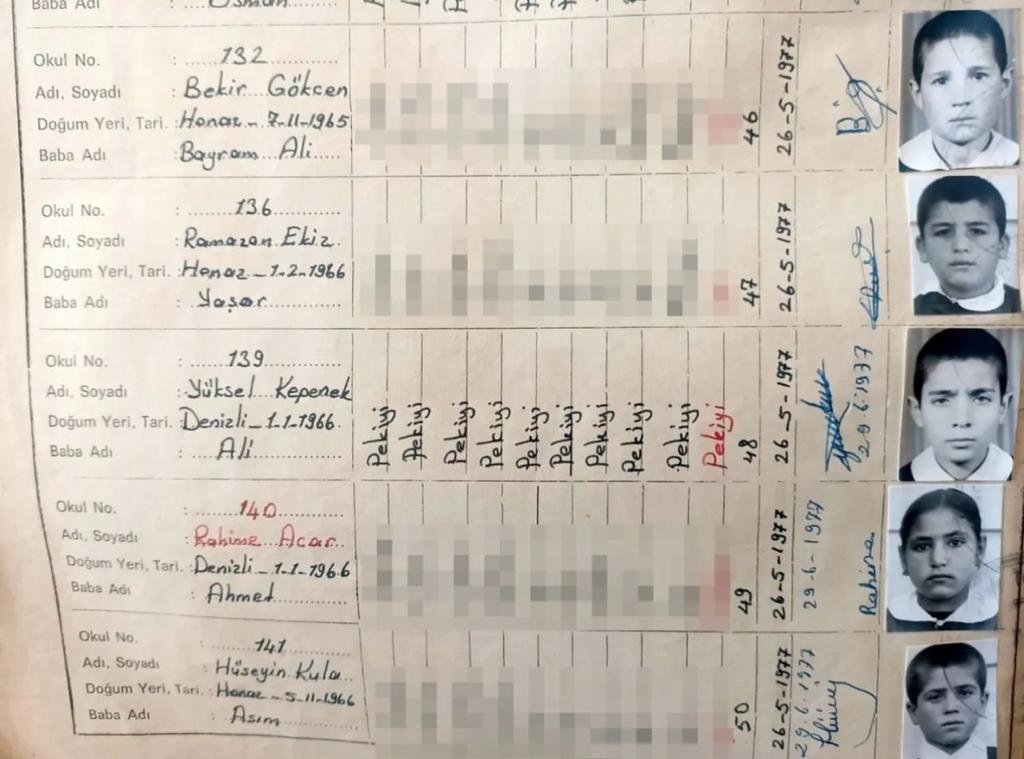 Baba Adı : Osman
Okul No. : 132
Adı, Soyadı : Bekir Gökcen
Doğum Yeri, Tari. : Honaz - 7-11-1965
Baba Adı : Bayram Ali
46
26-5-1977
Okul No. : 136
Adı, Soyadı : Ramazan Ekiz
Doğum Yeri, Tari. : Honaz - 1-2-1966
Baba Adı : Yaşar
47
26-5-1977
Okul No. : 139
Adı, Soyadı : Yüksel Kepenek
Doğum Yeri, Tari. : Denizli - 1-1-1966
Baba Adı : Ali
Pekiyi
Pekiyi
Pekiyi
Pekiyi
Pekiyi
Pekiyi
Pekiyi
Pekiyi
Pekiyi
Pekiyi
48
26-5-1977
29.6.1977
Okul No. : 140
Adı, Soyadı : Rahime Acar
Doğum Yeri, Tari. : Denizli - 1-1-1966
Baba Adı : Ahmet
49
26-5-1977
29-6-1977
Rahime
Okul No. : 141
Adı, Soyadı : Hüseyin Kula
Doğum Yeri, Tari. : Honaz - 5-11-1966
Baba Adı : Asım
50
26-5-1977
29.6.1977